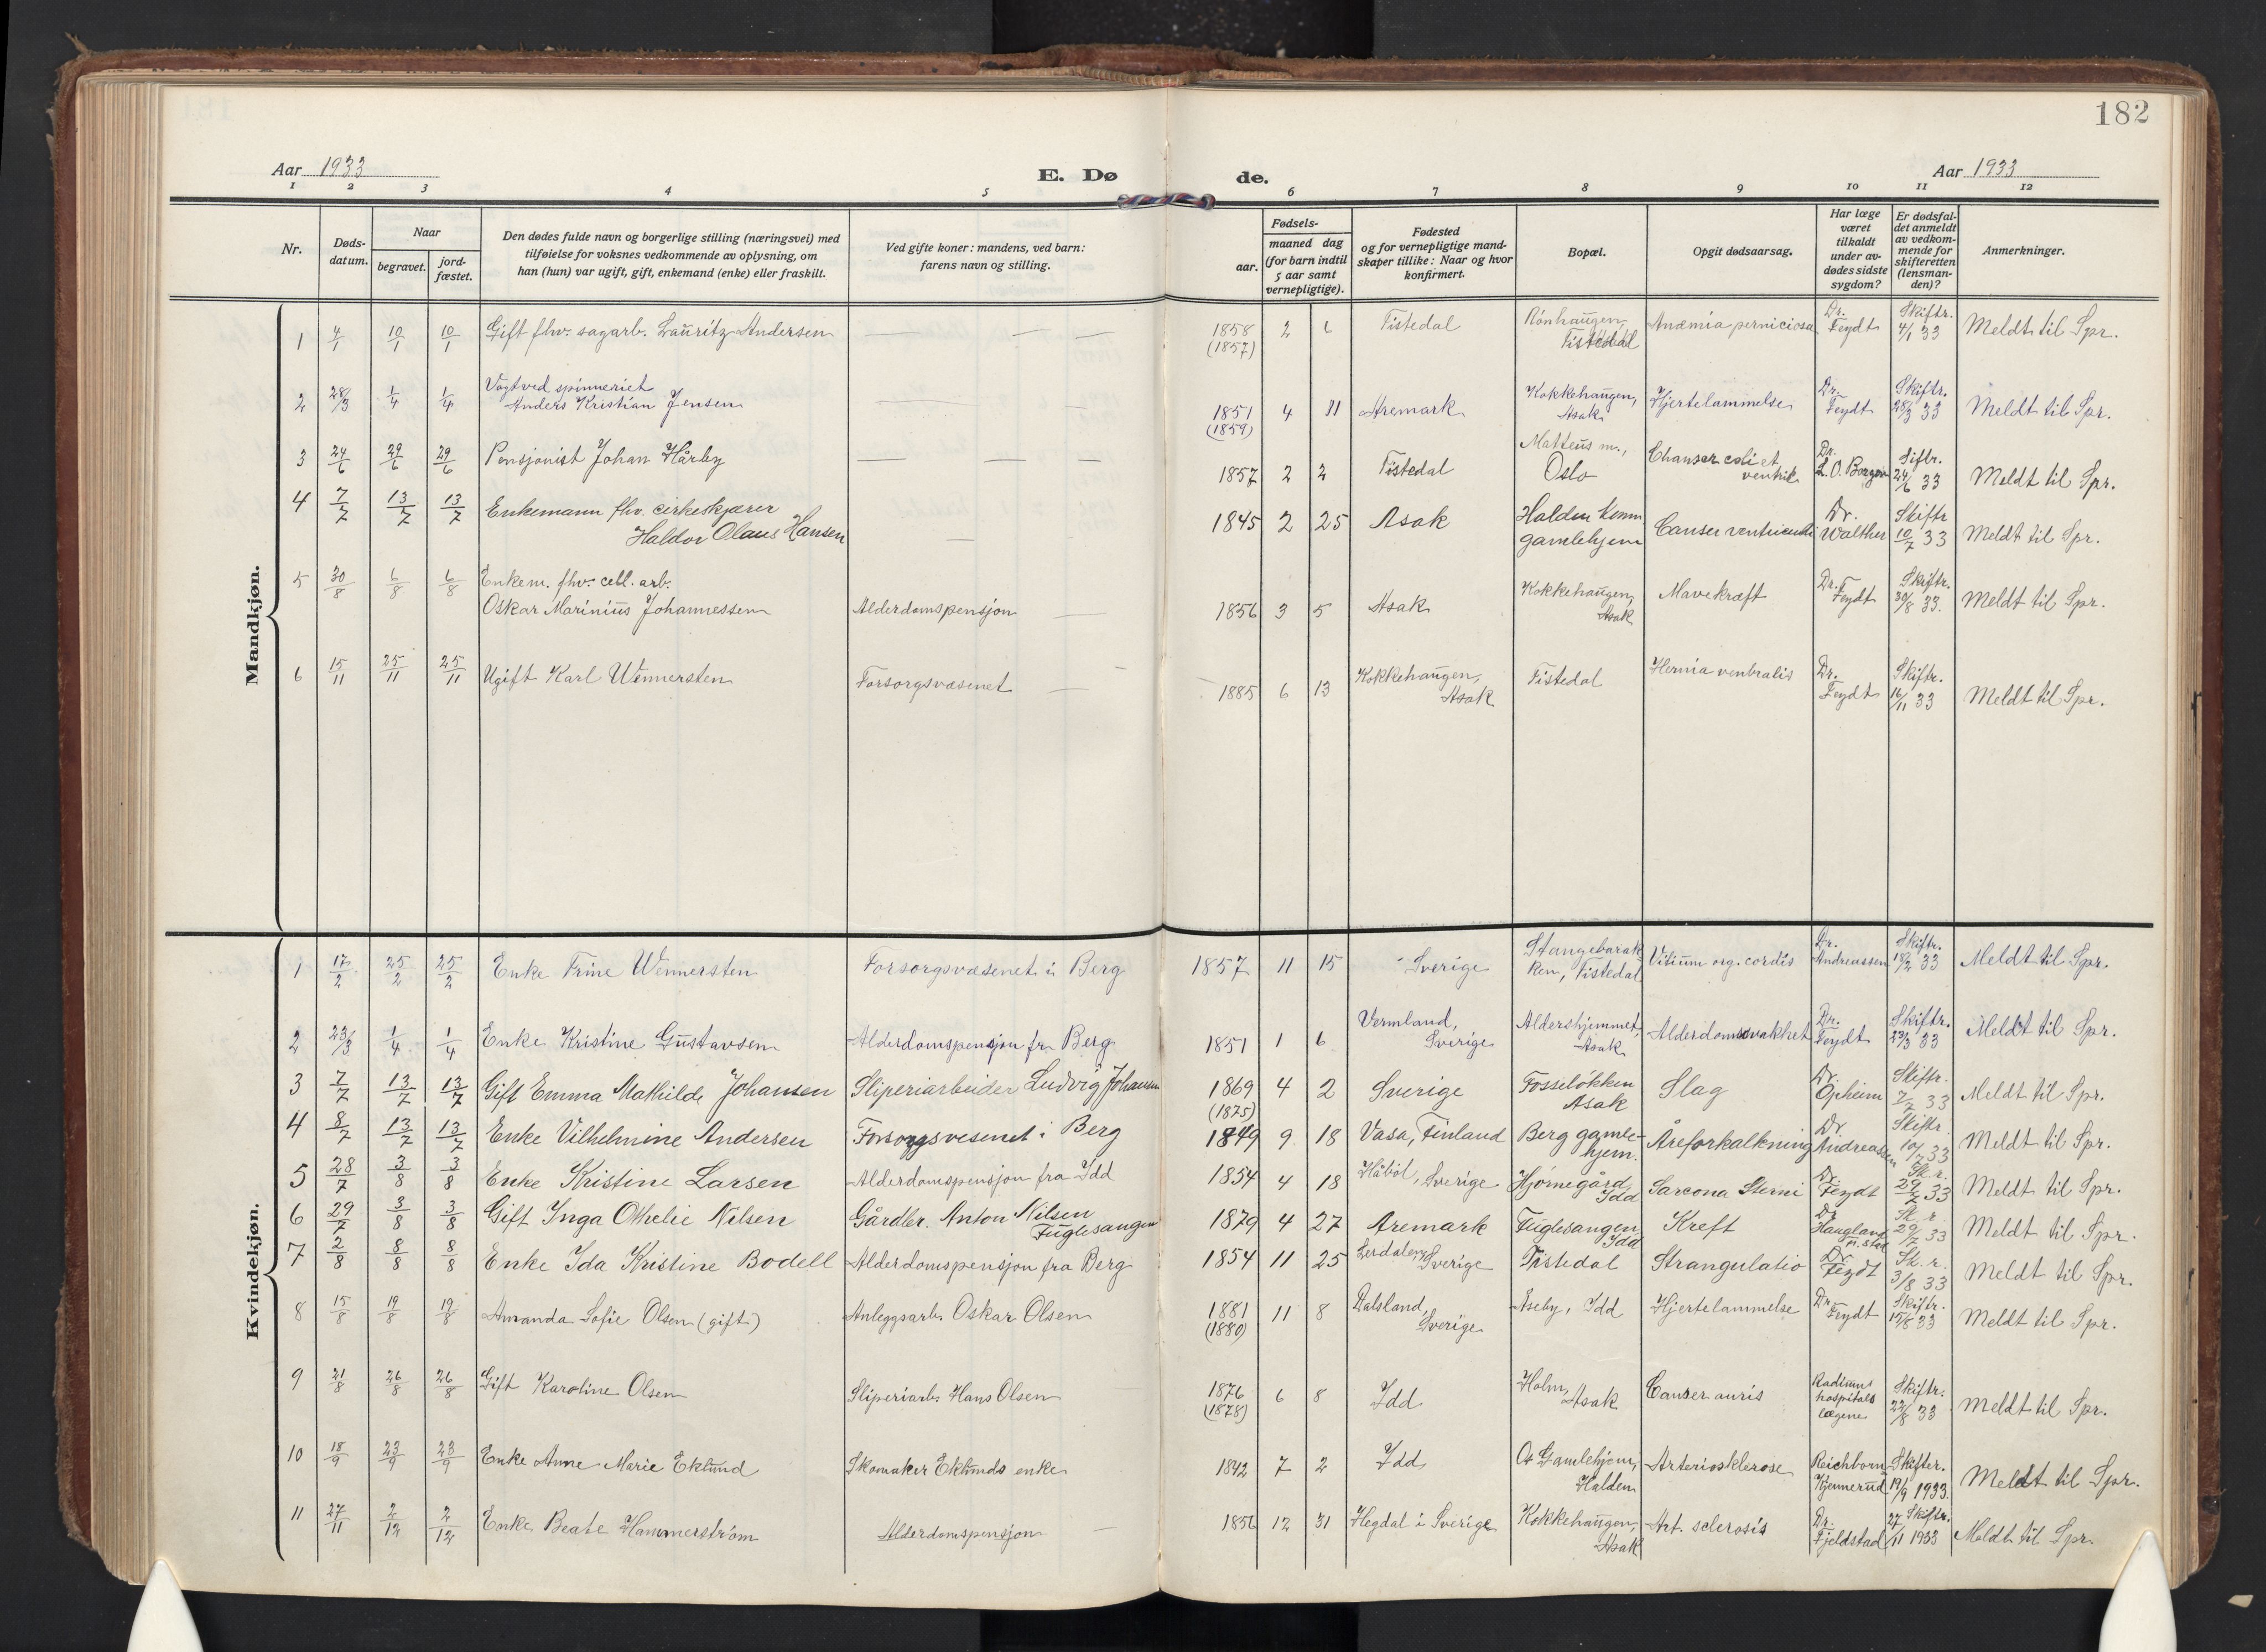 182
Aar 1933
E. Dø de.
Aar 1933
1 2 3 4 5 6 7 8 9 10 11 12
Nr.
Døds-datum.
Naar
begravet.
jord-fæstet.
Den dødes fulde navn og borgerlige stilling (næringsvei) med
tilføielse for voksnes vedkommende av oplysning, om
han (hun) var ugift, gift, enkemand (enke) eller fraskilt.
Ved gifte koner: mandens, ved barn:
farens navn og stilling.
Fødsels-
aar.
maaned dag
(for barn indtil
5 aar samt
vernepligtige).
Fødested
og for vernepligtige mand-
skaper tillike: Naar og hvor
konfirmert.
Bopæl.
Opgit dødsaarsag.
Har læge
været
tilkaldt
under av-
dødes sidste
sygdom?
Er dødsfal-
det anmeldt
av vedkom-
mende for
skifteretten
(lensman-
den)?
Anmerkninger.
Mandkjøn.
1 4/1 10/1 10/1 Gift fhv. sagarb. Lauritz Andersen — — — 1858 (1857) 2 6 Tistedal Rønhaugen, Tistedal Anæmia perniciosa Dr. Feydt Skiftr. 4/1 33 Meldt til Spr.
2 28/3 1/4 1/4 Vagt ved spinneriet Anders Kristian Jensen 1851 (1859) 4 11 Aremark Kokkehaugen, Asak Hjertelammelse Dr. Feydt Skiftr. 28/3 33 Meldt til Spr.
3 24/6 29/6 29/6 Pensjonist Johan Hårby — — — 1857 2 2 Tistedal Matteus m., Oslo Chanser coli et ventrik. Dr. L. O. Borgen Siftr. 24/6 33 Meldt til Spr.
4 7/7 13/7 13/7 Enkemann fhv. cirkeskjærer Haldor Olaus Hansen — 1845 2 25 Asak Halden komm. gamlehjem Canser ventriculi Dr. Walther Skiftr 10/7 33 Meldt til Spr.
5 30/8 6/8 6/8 Enkem. fhv. cell. arb. Oskar Marinius Johannessen Alderdomspensjon — 1856 3 5 Asak Kokkehaugen, Asak Mavekræft Dr. Feydt Skiftr. 30/8 33. Meldt til Spr.
6 15/11 25/11 25/11 Ugift Karl Wennersten Forsorgsvæsenet — 1885 6 13 Kokkehaugen, Asak Tistedal Hernia ventralis Dr. Feydt Skiftr. 16/11 33 Meldt til Spr.
Kvindekjøn.
1 17/2 25/2 25/2 Enke Trine Wennersten Forsorgsvæsenet i Berg 1857 11 15 Sverige Stangebarak- ken, Tistedal Vitium org. cordis Dr. Andreassen Skiftr. 18/2 33 Meldt til Spr.
2 23/3 1/4 1/4 Enke Kristine Gustavsen Alderdomspensjon fr. Berg 1851 1 6 Vermland, Sverige Aldershjemmet, Asak Alderdomssvakhet Dr. Feydt Skiftr. 23/3 33 Meldt til Spr.
3 7/7 13/7 13/7 Gift Emma Mathilde Johansen Sliperiarbeider Ludvig Johansen 1869 (1875) 4 2 Sverige Fosseløkken Asak Slag Dr. Opheim Skiftr. 7/7 33 Meldt til Spr.
4 8/7 13/7 13/7 Enke Vilhelmine Andersen Forsorgsvesenet i Berg 1849 9 18 Vasa, Finland Berg gamle- hjem. Åreforkalkning Dr. Andreassen Skiftr. 10/7 33 Meldt til Spr.
5 28/7 3/8 3/8 Enke Kristine Larsen Alderdomspensjon fra Idd 1854 4 18 Håbol, Sverige Hjørnegård Idd Sarcona Sterni Dr. Feydt Sk. r. 29/7 33 Meldt til Spr.
6 29/7 3/8 3/8 Gift Inga Othelie Nilsen Gårdbr. Anton Nilsen Fuglesangen 1879 4 27 Aremark Fuglesangen Idd Kreft Dr Haugland Sk. r. 29/7 33 Meldt til Spr.
7 2/8 8/8 8/8 Enke Ida Kristine Bodell Alderdomspensjon fra Berg 1854 11 25 Lerdalen, Sverige Tistedal Strangulatio Dr. Feydt Sk. r. 3/8 33 Meldt til Spr.
8 15/8 19/8 19/8 Amanda Sofie Olsen (gift) Anleggsarb. Oskar Olsen 1881 (1880) 11 8 Dalsland, Sverige Aseby, Idd Hjertelammelse Dr. Feydt Skiftr. 15/8 33 Meldt til Spr.
9 21/8 26/8 26/8 Gift Karoline Olsen Sliperiarb. Hans Olsen 1876 (1878) 6 8 Idd Holm, Asak Canser auris Radium hospitals lægene Skiftr. 22/8 33 Meldt til Spr.
10 18/9 23/9 23/9 Enke Anne Marie Eklund Skomaker Eklunds enke 1842 7 2 Idd Os Gamlehjem, Halden Arteriosklerose Reichborn- Kjennerud Skifter. 19/9 1933. Meldt til Spr.
11 27/11 2/12 2/12 Enke Beate Hammerstrøm Alderdomspensjon — 1856 12 31 Hegdal i Sverige Kokkehaugen, Asak Art. sclerosis Dr. Fjeldstad Skiftr. 27/11 1933 Meldt til Spr.